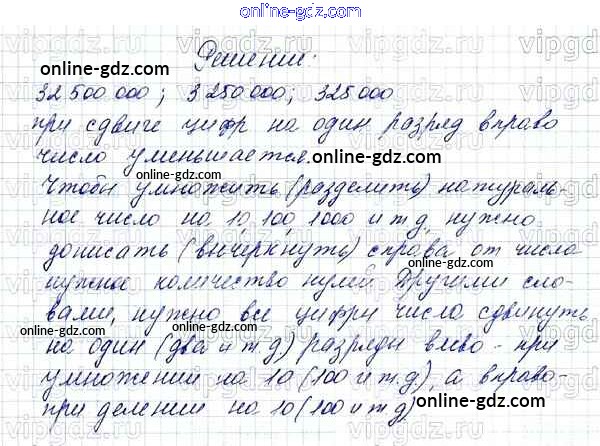 online-gdz.com
Решение:
online-gdz.com
32 500 000; 3 250 000; 325 000
при сдвиге цифр на один разряд вправо
число уменьшается. online-gdz.com
Чтобы умножить (разделить) натураль-
ное число на 10, 100, 1000 и т д, нужно
дописать (вычеркнуть) справа от числа
нужное количество нулей. Другими сло-
вами, нужно все цифры числа сдвинуть
online-gdz.com online-gdz.com
на один (два и т д) разряды влево - при
умножении на 10 (100 и т.д), а вправо-
при делении на 10 (100 и т д)
online-gdz.com online-gdz.com